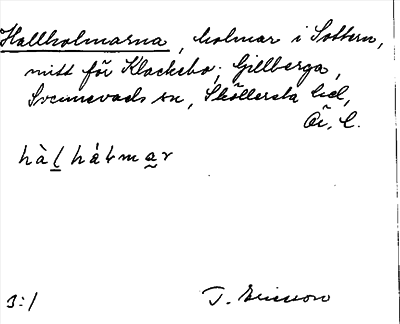 Hallholmarna, holmar i Sottern,
mitt för Klackebo, Gillberga,
Svennevads sn, Sköllersta hd,
Ö. l.
hàl hálmar
3:1
T. Ericsson